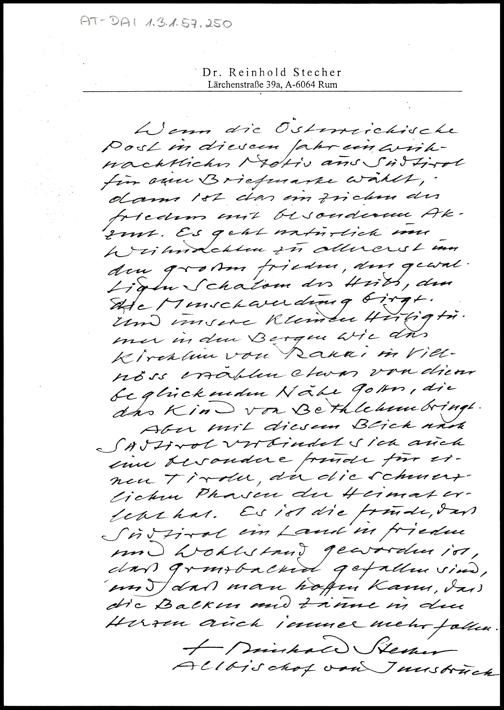 AT-DAI 1.3.1.57.250
Dr. Reinhold Stecher
Lärchenstraße 39a, A-6064 Rum
Wenn die Österreichische
Post in diesem Jahr ein weih-
nachtliches Motiv aus Südtirol
für eine Briefmarke wählt,
dann ist das ein Zeichen des
Friedens mit besonderem Ak-
zent. Es geht natürlich um
Weihnachten zu allererst um
den großen Frieden, den gewal-
tigen Schalom des Heils, den
die Menschwerdung birgt.
Und unsere kleinen Heiligtü-
mer in den Bergen wie das
Kirchlein von Ranui in Vill-
nöss erzählen etwas von dieser
beglückenden Nähe Gottes, die
das Kind von Bethlehem bringt.
Aber mit diesem Blick nach
Südtirol verbindet sich auch
eine besondere Freude für ei-
nen Tiroler, der die schmerz-
lichen Phasen der Heimat er-
lebt hat. Es ist die Freude, daß
Südtirol ein Land in Frieden
und Wohlstand geworden ist,
daß Grenzbalken gefallen sind,
und daß man hoffen kann, daß
die Balken und Zäune in den
Herzen auch immer mehr fallen.
+ Reinhold Stecher
Altbischof von Innsbruck